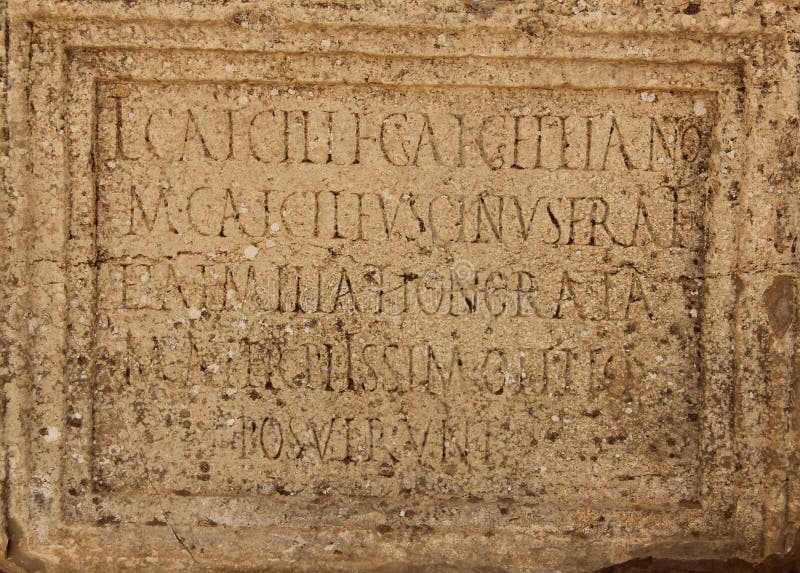 L·CAECILI·F·CAECILIANO
M·CAECILIVS CINVS FRAT
E AEMILIA HONORATA
MATER PIISSIMO FILIO
POSVERVNT